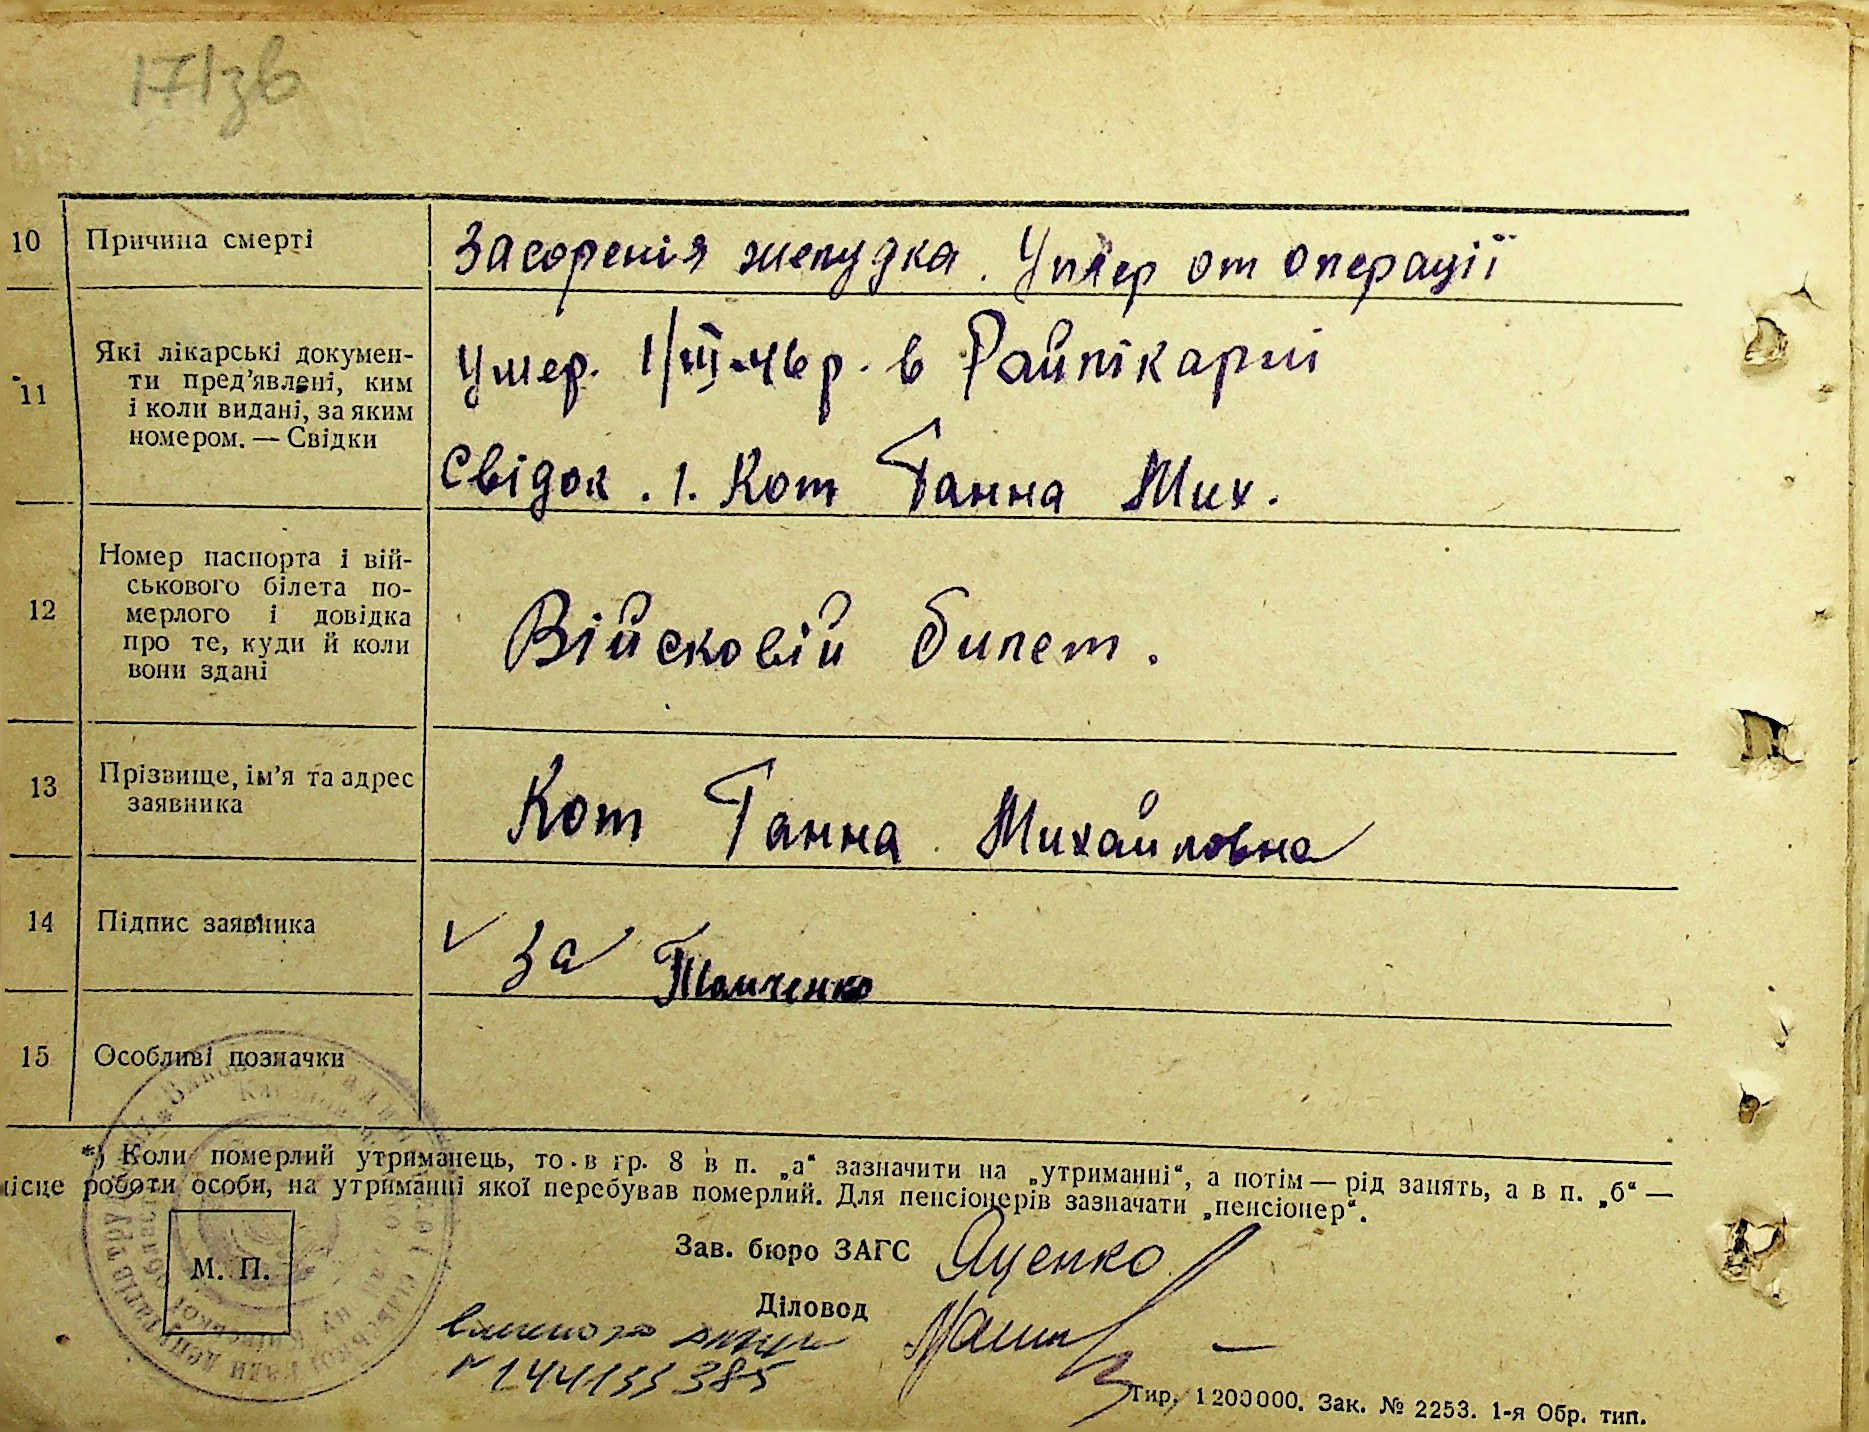 171зв
10 Причина смерті Засоренія желудка. Умер от операції
11 Які лікарські докумен-
ти пред'явлені, ким
і коли видані, за яким
номером. — Свідки
Умер. 1/III-46р. в Райлікарні
Свідок. 1. Кот Ганна Мих.
12 Номер паспорта і вій-
ськового білета по-
мерлого і довідка
про те, куди й коли
вони здані
Військовій билет.
13 Прізвище, ім'я та адрес
заявника
Кот Ганна Михайловна
14 Підпис заявника За
15 Особливі позначки
*) Коли померлий утриманець, то в гр. 8 в п. „а“ зазначити на „утриманні“, а потім — рід занять, а в п. „б“ —
місце роботи особи, на утриманні якої перебував померлий. Для пенсіонерів зазначати „пенсіонер“.
М. П.
Зав. бюро ЗАГС Яценко
Діловод
N 144133385
Тир. 1200000. Зак. № 2253. 1-я Обр. тип.